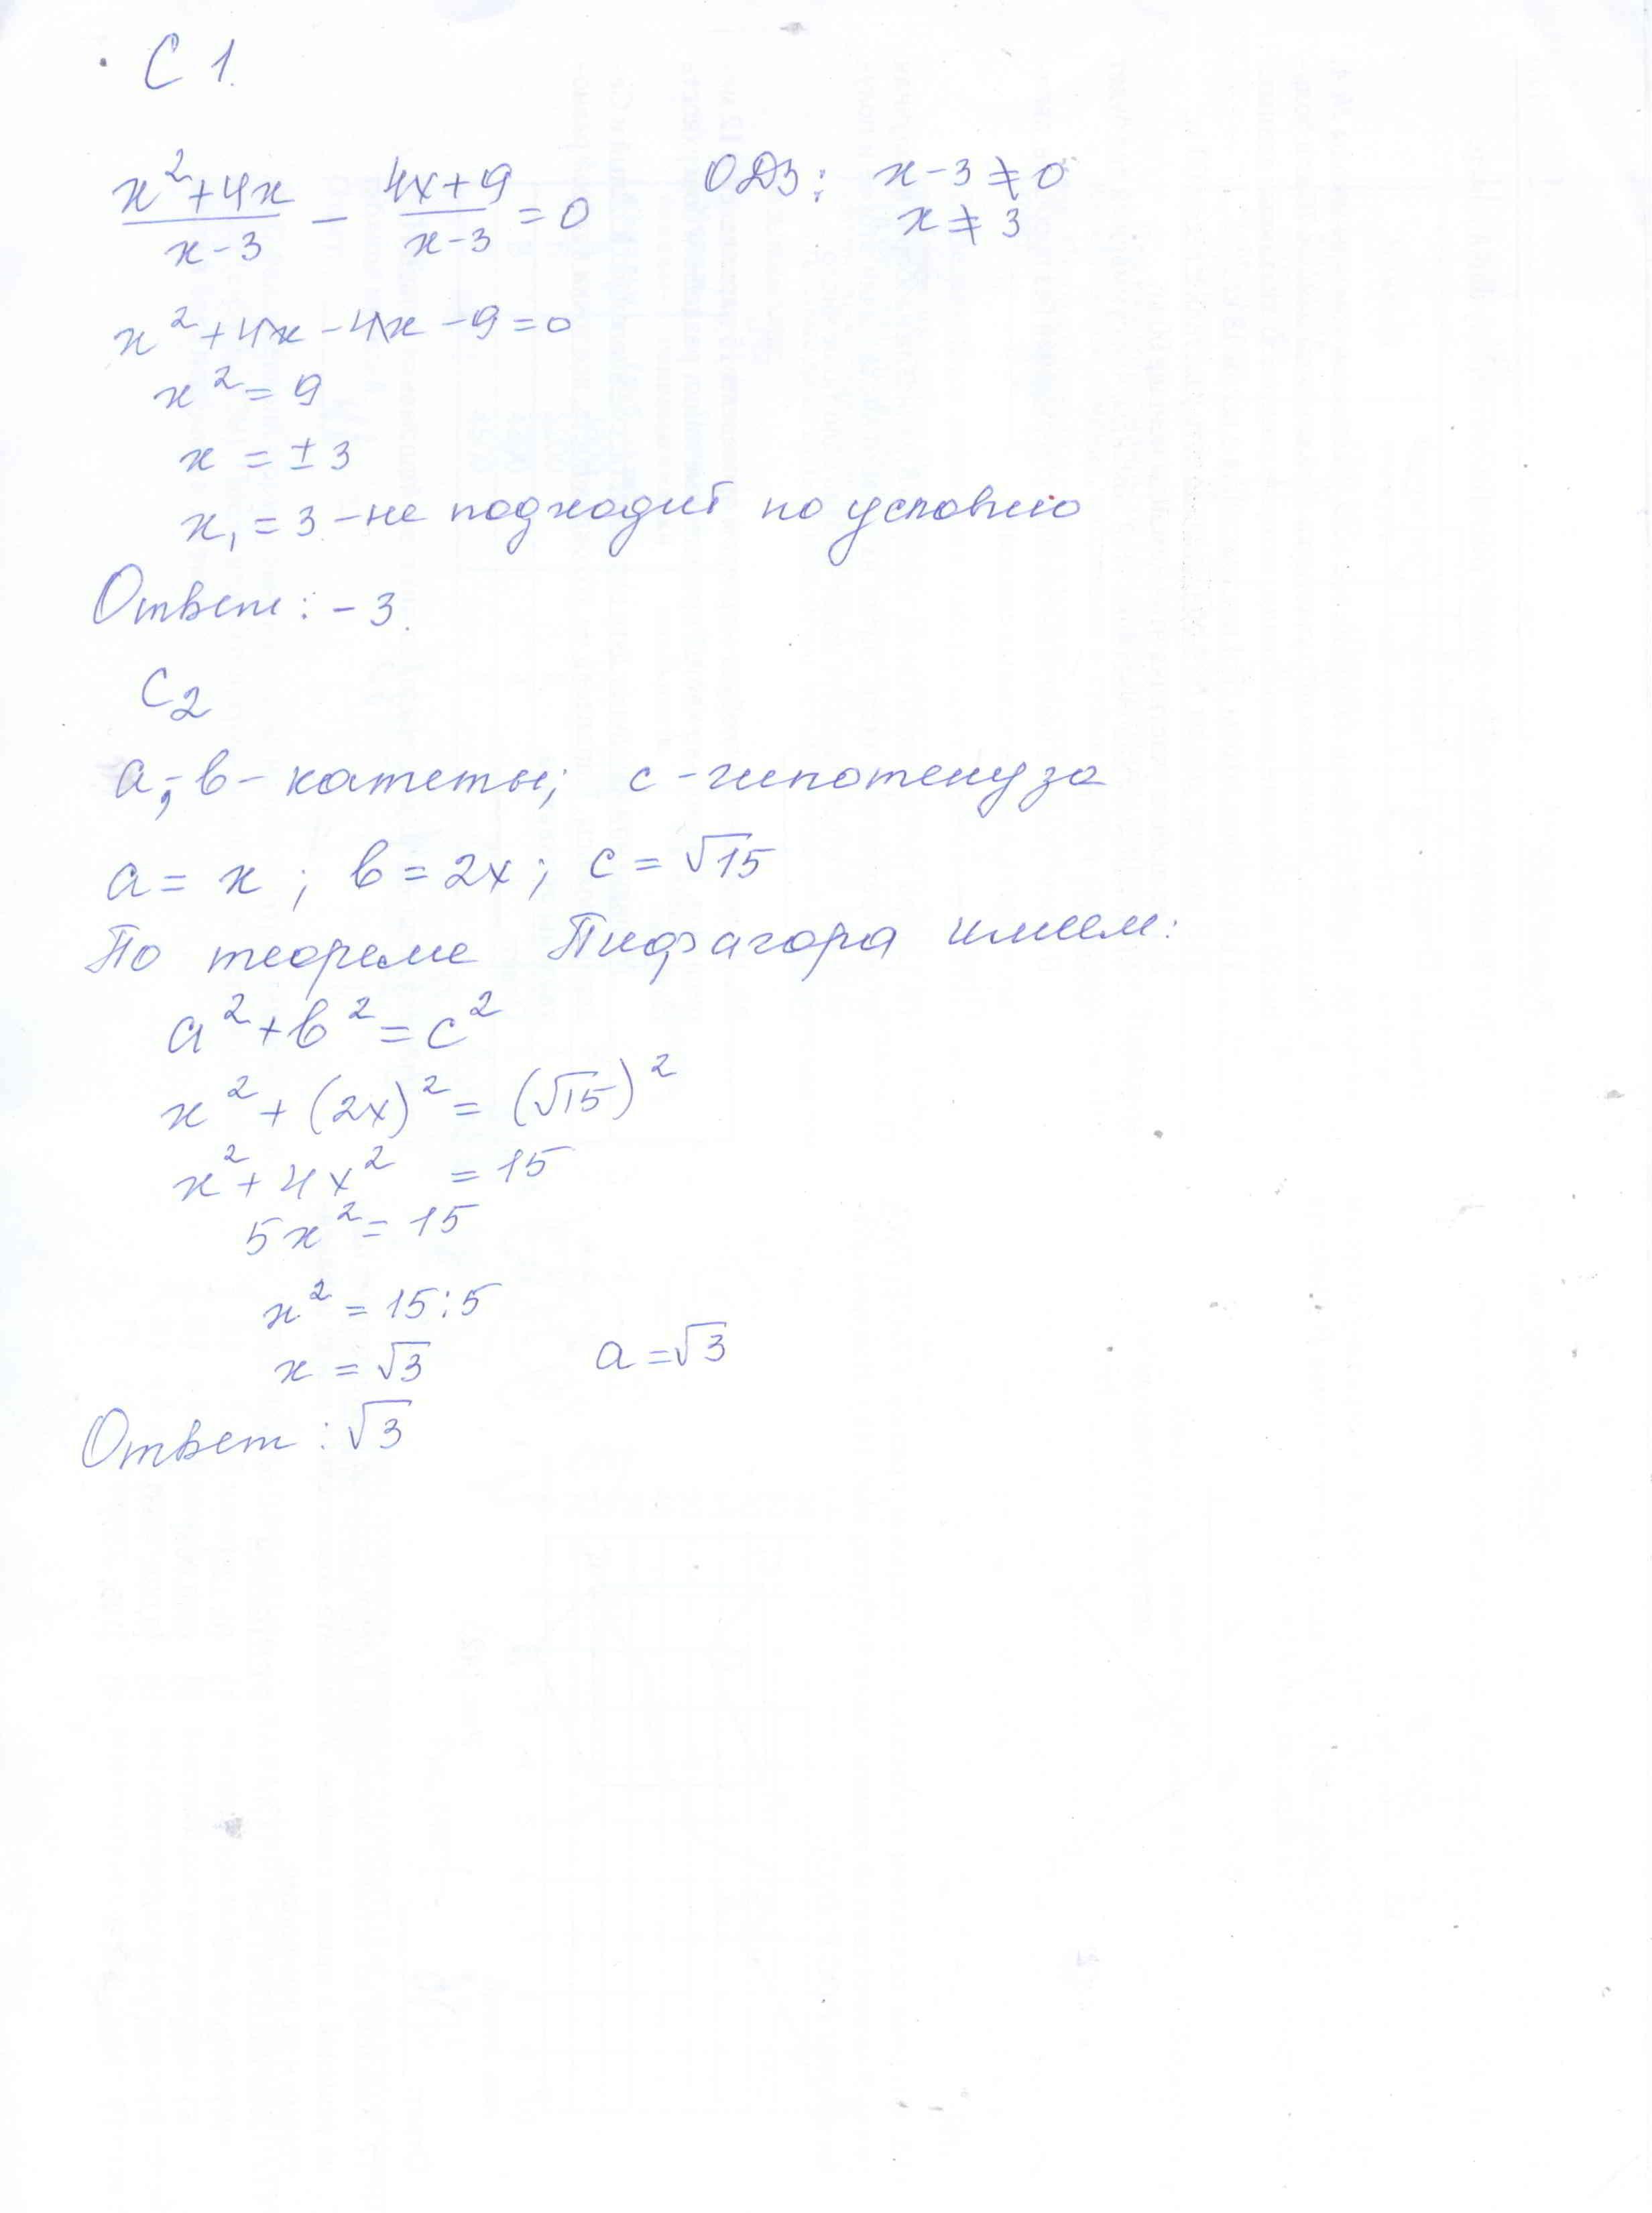 С 1.
(x²+4x)/(x-3) - (4x+9)/(x-3) = 0 ОДЗ: x-3≠0
x≠3
x²+4x-4x-9=0
x²=9
x=±3
x₁=3-не подходит по условию
Ответ: -3.
С2
а; в- катеты; с-гипотенуза
а=x; в=2x; с=√15
По теореме Пифагора имеем:
а²+в²=с²
x²+(2x)²=(√15)²
x²+4x²=15
5x²=15
x²=15:5
x=√3 а=√3
Ответ: √3